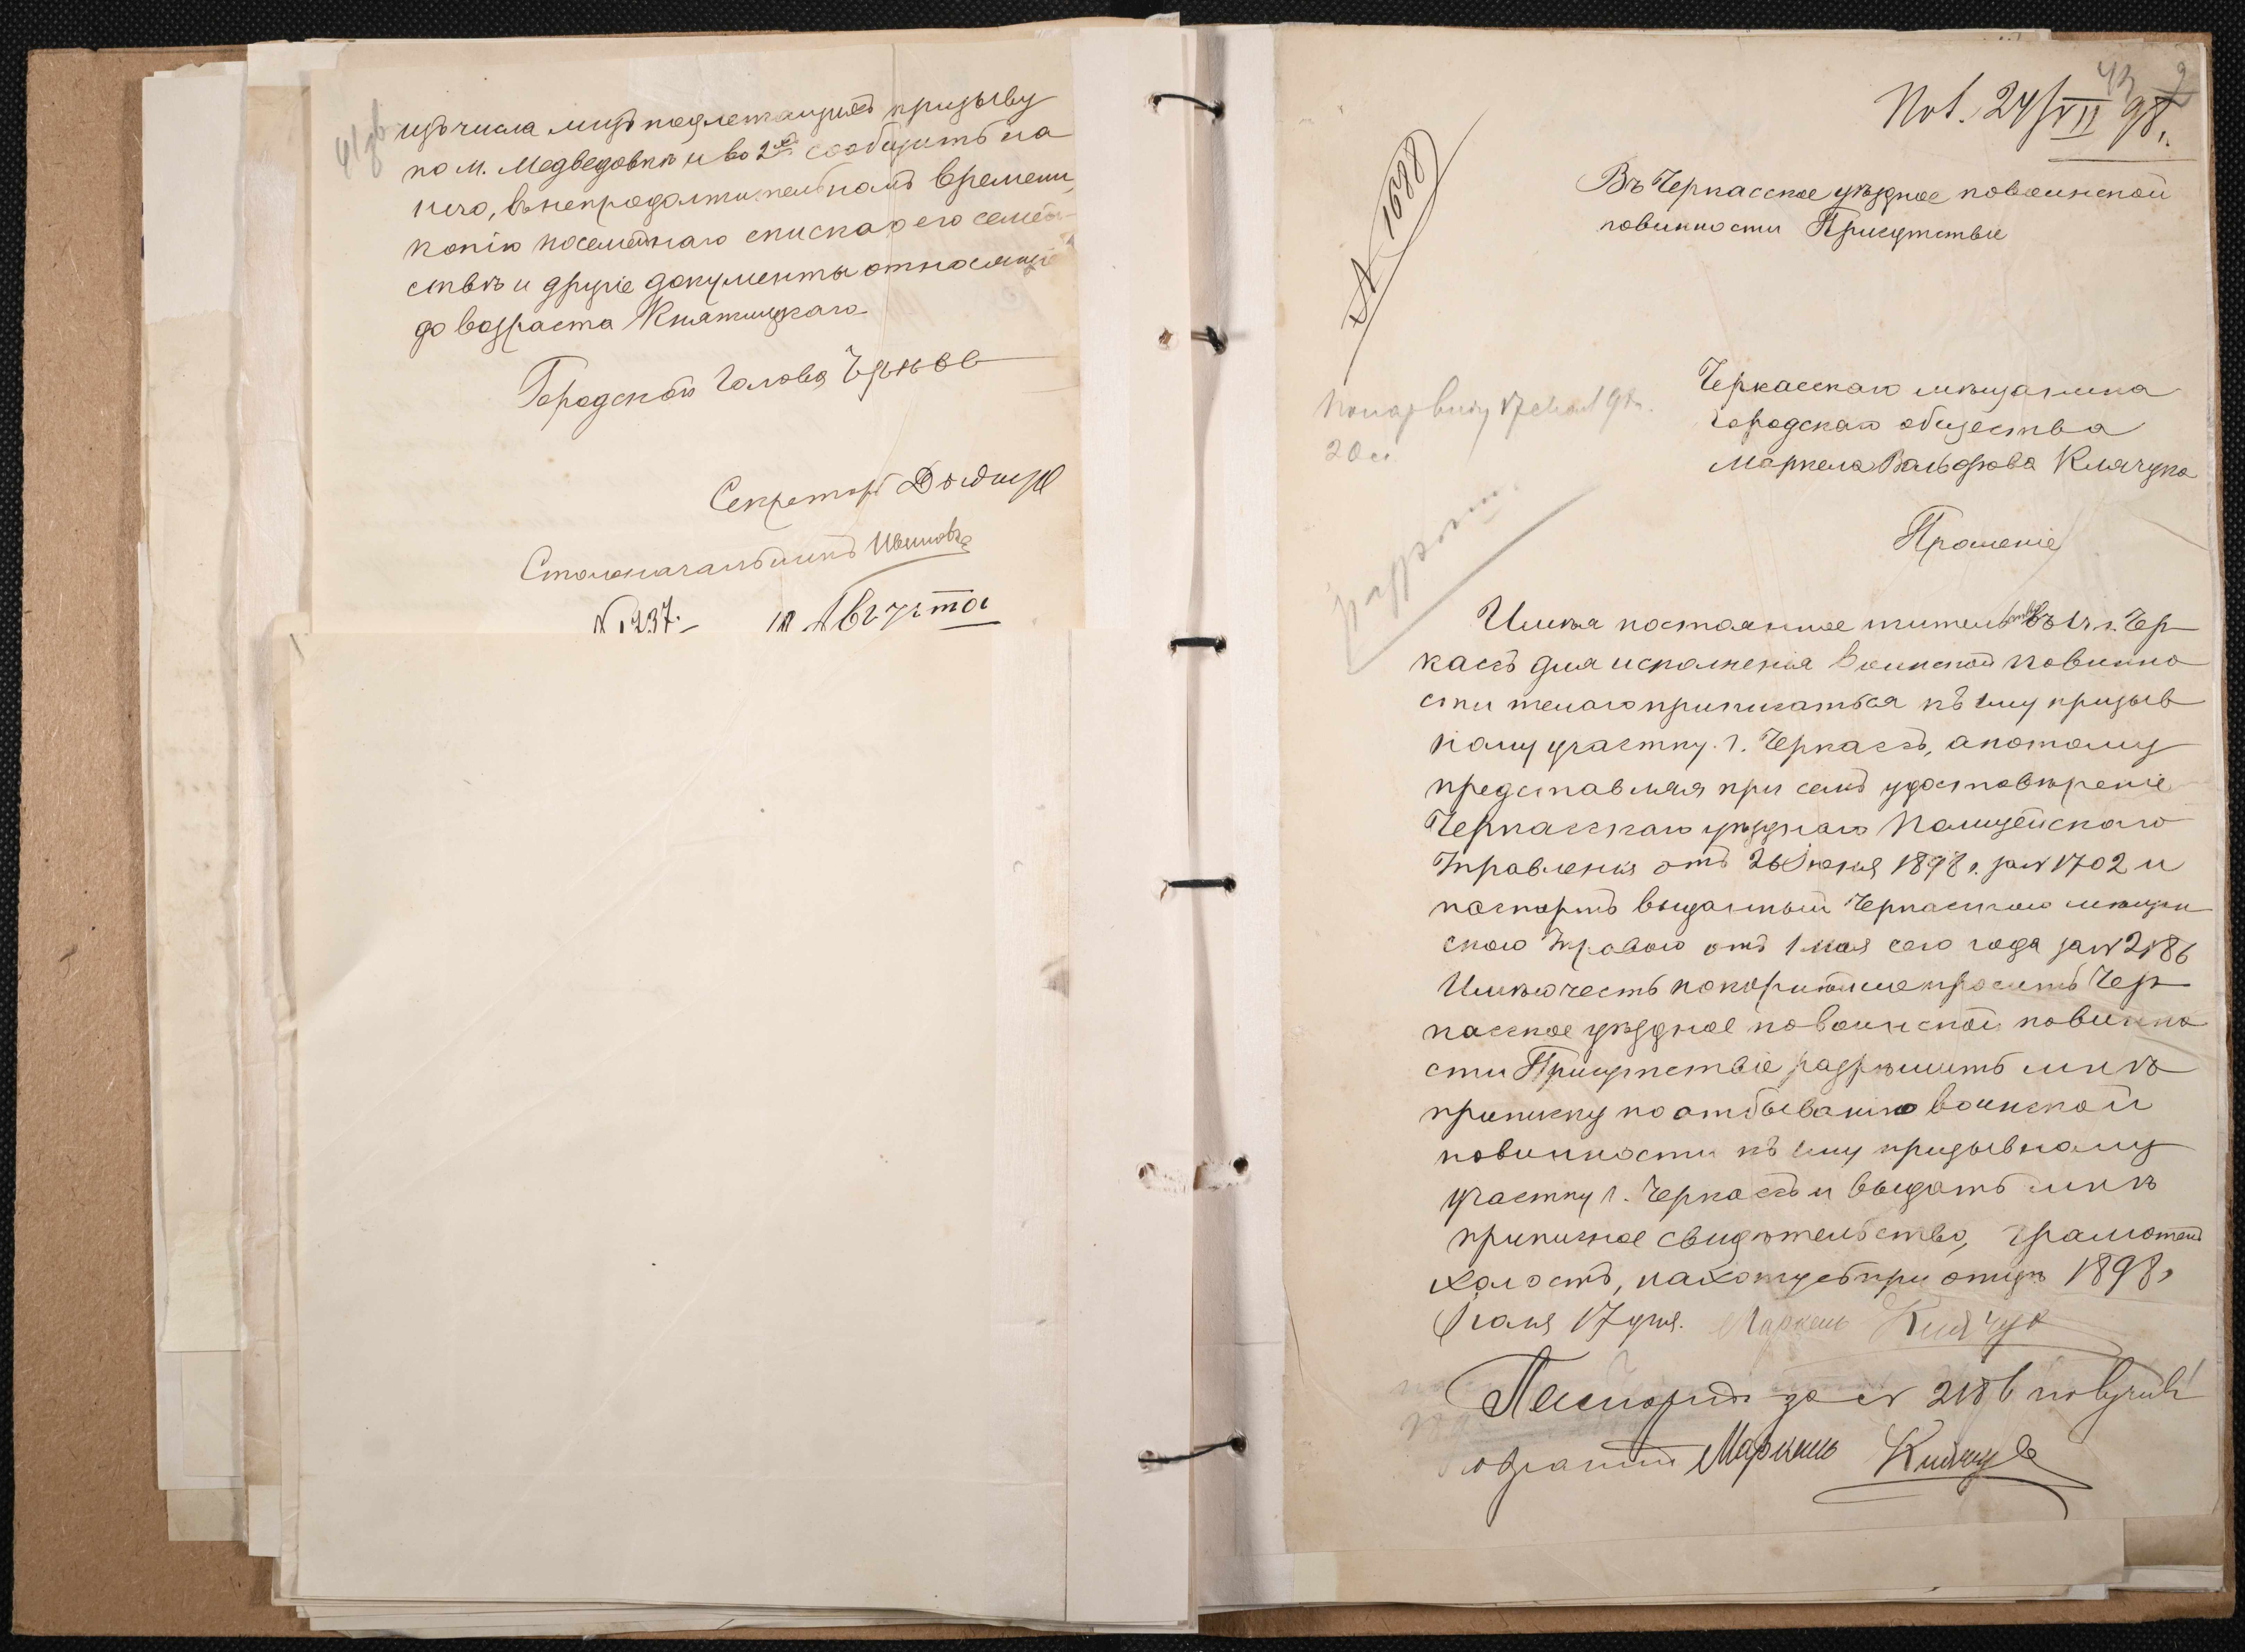 изъ числа лицъ подлежащихъ призыву
по м. Медведовкѣ и во 2хъ сообщить на
него, въ непродолжительномъ времени,
копію посемейнаго списка о его семей-
ствѣ и другіе документы относящіе
до возраста Княжицкаго
Городской Голова
Секретарь
Столоначальникъ Ивановъ
№ 1237. 10 Августа
41 об
№ 1688
24/VII 98 г.
43
Въ Черкасское уѣздное по воинской
повинности Присутствіе
Черкасскаго мѣщанина
городскаго общества
Маркела Вольфова Клячука
Прошеніе
Имѣя постоянное жительство въ 1 ч. г. Чер-
касъ для исполненія воинской повинно
сти желаю приписаться къ 1му призыв
ному участку г. Черкасъ, а потому
представляя при семъ удостовѣреніе
Черкасскаго уѣзднаго Полицейскаго
Управленія отъ 26 Іюня 1898 г. за № 1702 и
паспортъ выданный Черкасскою мѣщан
скою Управою отъ 1 мая сего года за № 2186
Имѣю честь покорнѣйше просить Чер-
касское уѣздное по воинской повинно
сти Присутствіе разрѣшить мнѣ
приписку по отбыванію воинской
повинности къ 1му призывному
участку г. Черкасъ и выдать мнѣ
приписное свидѣтельство, грамотенъ
холостъ, нахожусь при отцѣ 1898 г
17 дня. Маркель Клячук
Паспортъ за № 2186 получилъ
обратно Маркель Клячук